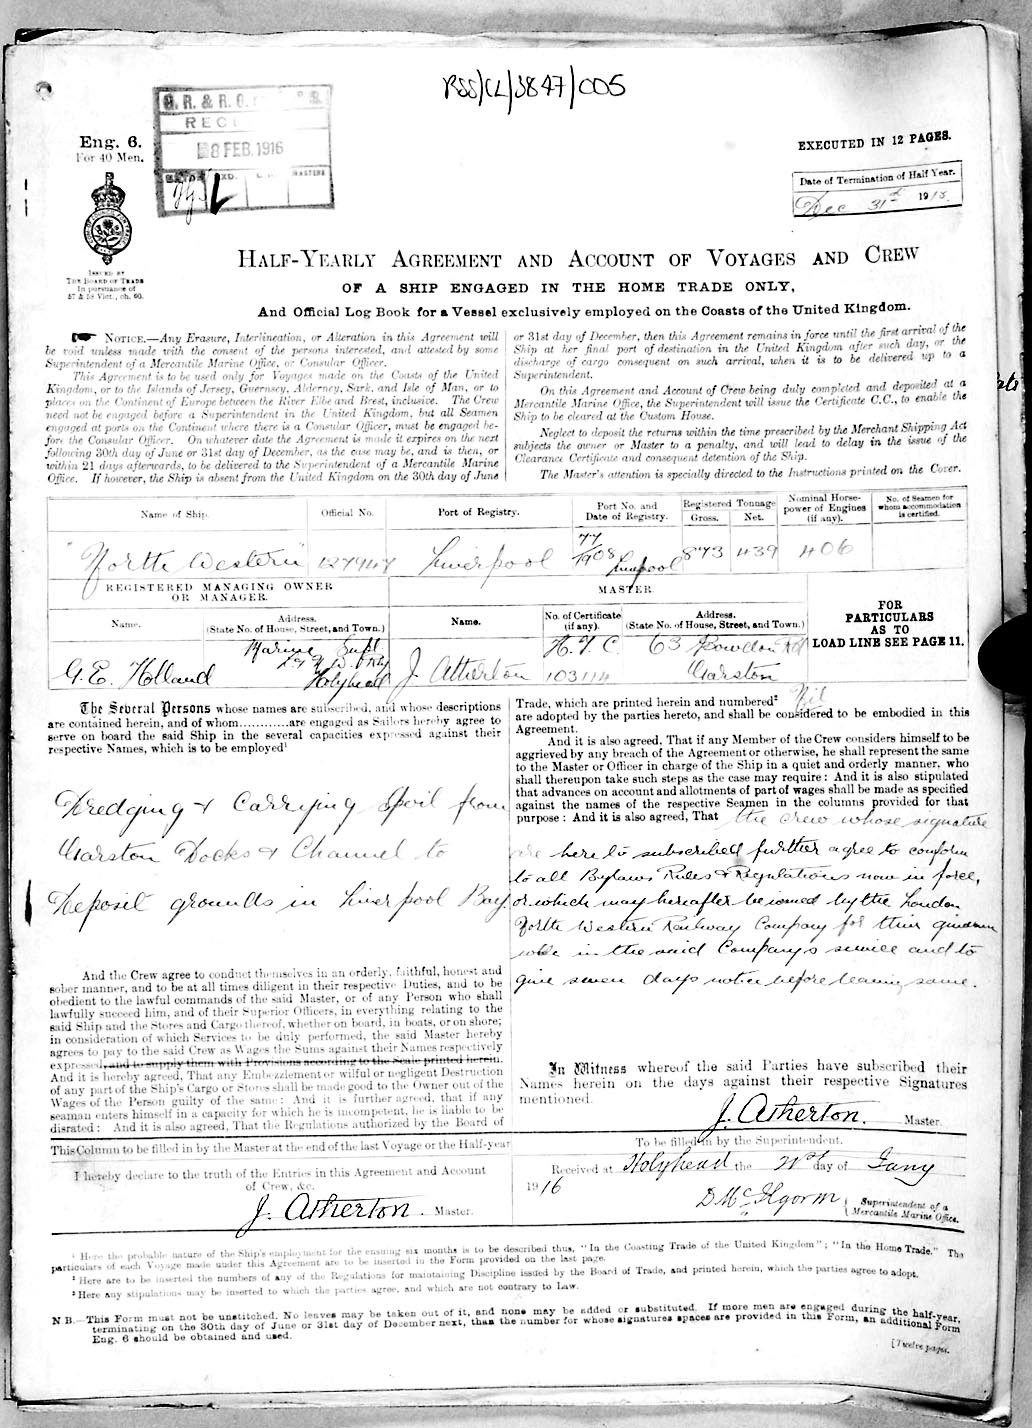 RSS/CL/3847/005
G. R. & R. G.
REC
8 FEB. 1916
MASTERS
Eng. 6.
For 40 Men.
EXECUTED IN 12 PAGES.
Date of Termination of Half Year.
Dec 31st 1915
ISSUED BY
THE BOARD OF TRADE
In pursuance of
57 & 58 Vict., ch. 60.
HALF-YEARLY AGREEMENT AND ACCOUNT OF VOYAGES AND CREW
OF A SHIP ENGAGED IN THE HOME TRADE ONLY,
And Official Log Book for a Vessel exclusively employed on the Coasts of the United Kingdom.
NOTICE.—Any Erasure, Interlineation, or Alteration in this Agreement will
be void unless made with the consent of the persons interested, and attested by some
Superintendent of a Mercantile Marine Office, or Consular Officer.
This Agreement is to be used only for Voyages made on the Coasts of the United
Kingdom, or to the Islands of Jersey, Guernsey, Alderney, Sark, and Isle of Man, or to
places on the Continent of Europe between the River Elbe and Brest, inclusive. The Crew
need not be engaged before a Superintendent in the United Kingdom, but all Seamen
engaged at ports on the Continent where there is a Consular Officer, must be engaged be-
fore the Consular Officer. On whatever date the Agreement is made it expires on the next
following 30th day of June or 31st day of December, as the case may be, and is then, or
within 21 days afterwards, to be delivered to the Superintendent of a Mercantile Marine
Office. If however, the Ship is absent from the United Kingdom on the 30th day of June
or 31st day of December, then this Agreement remains in force until the first arrival of the
Ship at her final port of destination in the United Kingdom after such day, or the
discharge of cargo consequent on such arrival, when it is to be delivered up to a
Superintendent.
On this Agreement and Account of Crew being duly completed and deposited at a
Mercantile Marine Office, the Superintendent will issue the Certificate C.C., to enable the
Ship to be cleared at the Custom House.
Neglect to deposit the returns within the time prescribed by the Merchant Shipping Act
subjects the owner or Master to a penalty, and will lead to delay in the issue of the
Clearance Certificate and consequent detention of the Ship.
The Master's attention is specially directed to the Instructions printed on the Cover.
Name of Ship. Official No. Port of Registry. Port No. and Date of Registry. Registered Tonnage Gross. Net. Nominal Horse-power of Engines (if any). No. of Seamen for whom accommodation is certified.
"North Western" 127944 Liverpool 77/1908 Liverpool 873 439 406
REGISTERED MANAGING OWNER OR MANAGER.
MASTER
FOR
PARTICULARS
AS TO
LOAD LINE SEE PAGE 11.
Name. Address. (State No. of House, Street, and Town.) Name. No. of Certificate (if any). Address. (State No. of House, Street, and Town.)
G. E. Holland Marine Supt L & N W Rly Holyhead J. Atherton H.T.C. 103114 63 Bowdon Rd Garston
The Several Persons whose names are subscribed, and whose descriptions
are contained herein, and of whom............are engaged as Sailors hereby agree to
serve on board the said Ship in the several capacities expressed against their
respective Names, which is to be employed¹
Dredging & Carrying Spoil from
Garston Docks & Channel to
Deposit grounds in Liverpool Bay
And the Crew agree to conduct themselves in an orderly, faithful, honest and
sober manner, and to be at all times diligent in their respective Duties, and to be
obedient to the lawful commands of the said Master, or of any Person who shall
lawfully succeed him, and of their Superior Officers, in everything relating to the
said Ship and the Stores and Cargo thereof, whether on board, in boats, or on shore;
in consideration of which Services to be duly performed, the said Master hereby
agrees to pay to the said Crew as Wages the Sums against their Names respectively
expressed, and to supply them with Provisions according to the Scale printed herein.
And it is hereby agreed, That any Embezzlement or wilful or negligent Destruction
of any part of the Ship's Cargo or Stores shall be made good to the Owner out of the
Wages of the Person guilty of the same: And it is further agreed, that if any
seaman enters himself in a capacity for which he is incompetent, he is liable to be
disrated: And it is also agreed, That the Regulations authorized by the Board of
Trade, which are printed herein and numbered² Nil
are adopted by the parties hereto, and shall be considered to be embodied in this
Agreement.
And it is also agreed, That if any Member of the Crew considers himself to be
aggrieved by any breach of the Agreement or otherwise, he shall represent the same
to the Master or Officer in charge of the Ship in a quiet and orderly manner, who
shall thereupon take such steps as the case may require: And it is also stipulated
that advances on account and allotments of part of wages shall be made as specified
against the names of the respective Seamen in the columns provided for that
purpose: And it is also agreed, That the crew whose signature
are hereto subscribed further agree to conform
to all Bylaws Rules & Regulations now in force,
or which may hereafter be issued by the London
North Western Railway Company for their guidance
while in the said Company's service and to
give seven days notice before leaving same.
In Witness whereof the said Parties have subscribed their
Names herein on the days against their respective Signatures
mentioned.
J. Atherton. Master.
This Column to be filled in by the Master at the end of the last Voyage or the Half-year
I hereby declare to the truth of the Entries in this Agreement and Account
of Crew, &c.
J. Atherton. Master.
To be filled in by the Superintendent.
Received at Holyhead the 21st day of Jany
1916
D McIlgorm Superintendent of a Mercantile Marine Office.
¹ Here the probable nature of the Ship's employment for the ensuing six months is to be described thus, "In the Coasting Trade of the United Kingdom"; "In the Home Trade." The
particulars of each Voyage made under this Agreement are to be inserted in the Form provided on the last page.
² Here are to be inserted the numbers of any of the Regulations for maintaining Discipline issued by the Board of Trade, and printed herein, which the parties agree to adopt.
³ Here any stipulations may be inserted to which the parties agree, and which are not contrary to Law.
N.B.—This Form must not be unstitched. No leaves may be taken out of it, and none may be added or substituted. If more men are engaged during the half-year,
terminating on the 30th day of June or 31st day of December next, than the number for whose signatures spaces are provided in this Form, an additional Form
Eng. 6 should be obtained and used.
[Twelve pages.